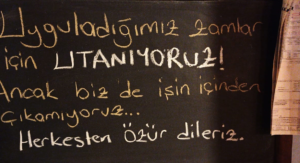 Uyguladığımız zamlar
için UTANIYORUZ!
Ancak biz de işin içinden
çıkamıyoruz...
Herkesten özür dileriz.